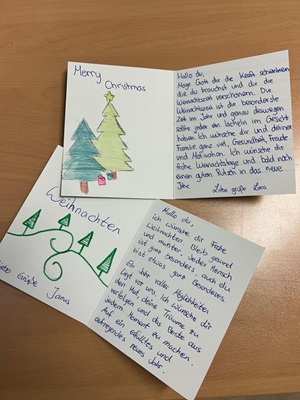 Merry
Christmas
Hallo du,
Möge Gott dir die Kraft schenken
die du brauchst und dir die
Weihnachtszeit verschönern. Die
Weihnachtszeit ist die besonderste
Zeit im Jahr und genau deswegen
sollte jeder ein lächeln im Gesicht
haben. Ich wünsche dir und deiner
Familie ganz viel Gesundheit, Freude
und Motivation. Ich wünsche dir
frohe Weihnachtstage und bald noch
einen guten Rutsch in das neue
Jahr.
Liebe grüße Lora
Weihnachten
Liebe Grüße Janis
Hallo du!
Ich wünsche dir Frohe
Weihnachten! Bleib gesund
und munter. Jeder Mensch
ist ganz besonders, auch du
bist etwas ganz Besonderes.
Ein Jahr voller Möglichkeiten
liegt vor uns. Ich wünsche dir
den Mut, deine Träume zu
verfolgen und das Beste aus
jedem Moment zu machen.
Auf ein erfülltes und
aufregendes neues Jahr.